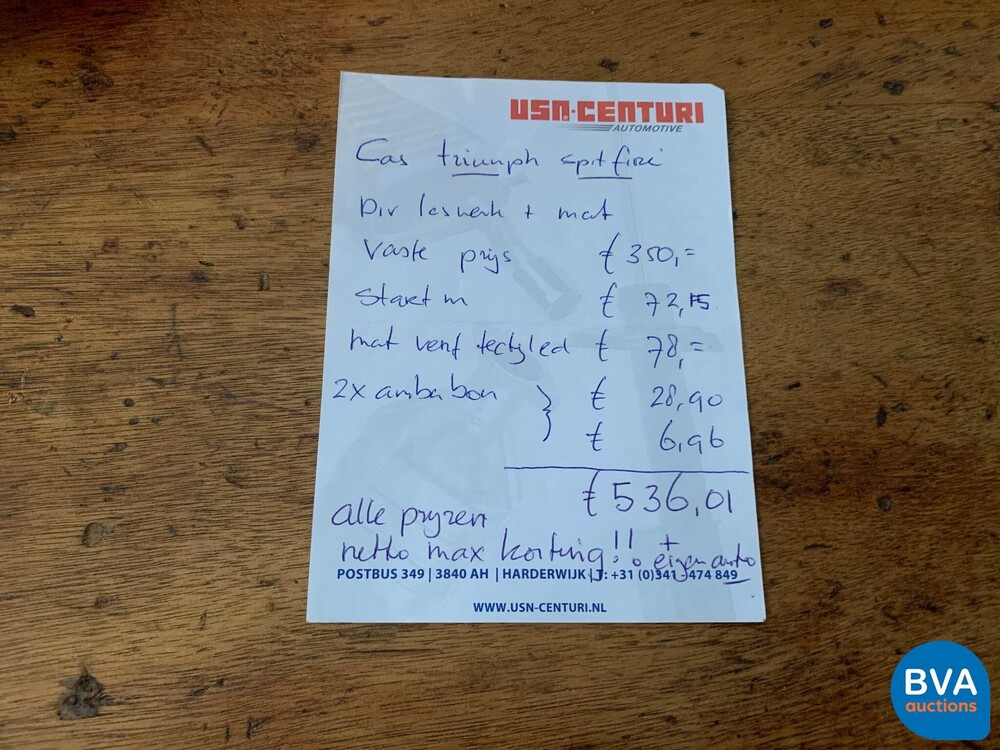 USN-CENTURI
AUTOMOTIVE
Cas triumph spitfire
Div laswerk + mat
Vaste prijs € 350,=
Start m € 72,15
mat verf tectyled € 78,=
2x amba bon } € 28,90
€ 6,96
€ 536,01
alle prijzen
netto max korting!! + eigen auto
POSTBUS 349 | 3840 AH | HARDERWIJK | T: +31 (0)341 - 474 849
WWW.USN-CENTURI.NL
BVA
auctions